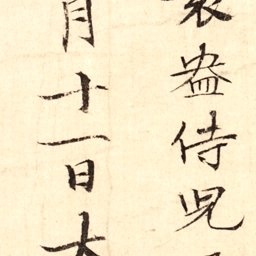 袁盎侍兒
月十一日大